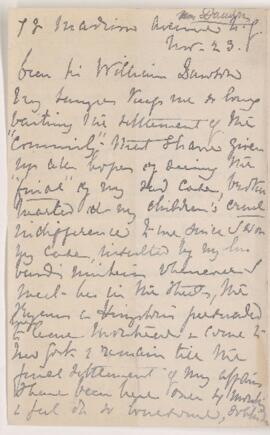 Mrs Dawson
72 Madison Avenue N.Y.
Nov. 23.
Dear Sir William Dawson
My lawyer keeps me so long
waiting the settlement of the
"Community" that I have given
up all hopes of seeing the
"finis" of my sad case, broken
hearted at my children's cruel
indifference to me since I won
my case, insulted by my hus
bands minions whenever I
meet her in the streets, the
persuaded
to leave Montreal & come to
New York & remain till the
final settlement of my affairs
I have been here over a month
& feel oh so lonesome,